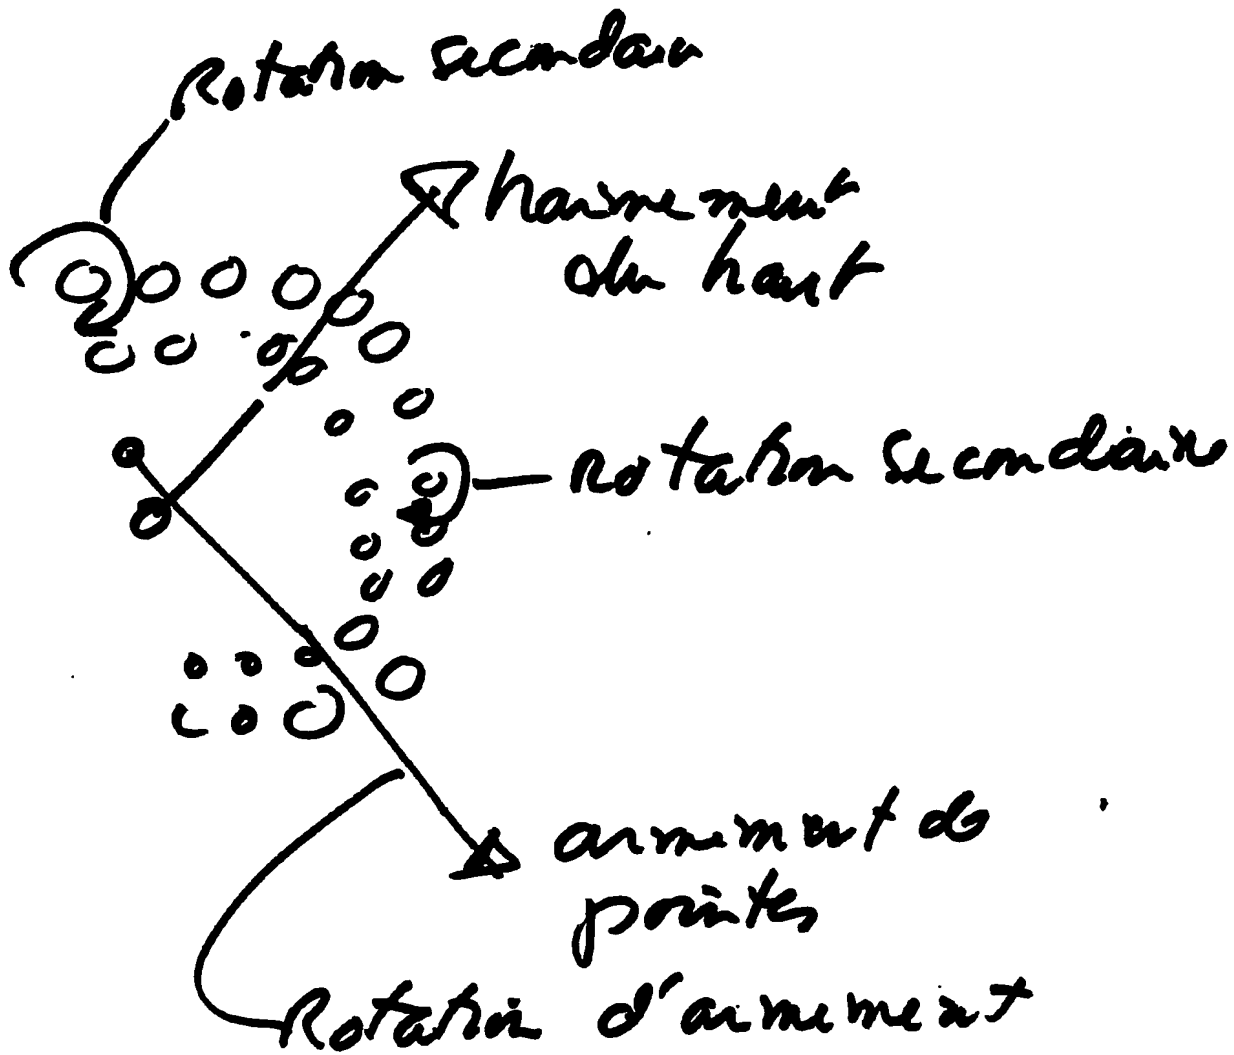 Rotation secondaire
harnement
du haut
Rotation secondiaire
armement de
pointes
Rotation d'armement